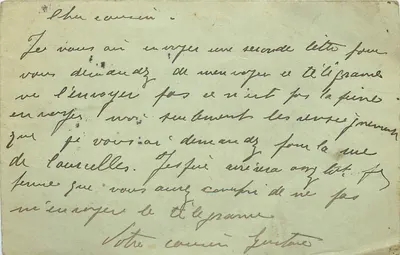 Cher cousin.
Je vous ai envoyer une seconde lettre pour
vous demandez de m'envoyer ce télégrame
ne l'envoyer pas ce n'est pas la peine
envoyer moi seulement les renseignements
que je vous ai demandez pour la rue
de Courcelles. J'espère
que vous aurez compri de ne pas
m'envoyer le télégrame
Votre cousin Gustave